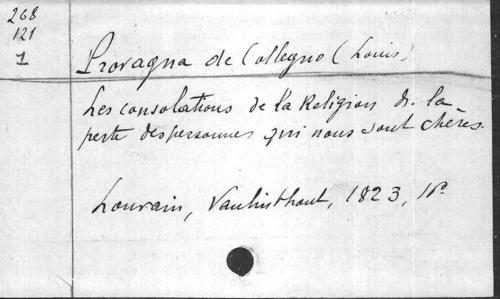 268
121
1
Provagna de Collegno (Louis)
Les consolations de la Religion ds. la
perte des personnes qui nous sont chères.
Louvain, Vanlinthout, 1823,